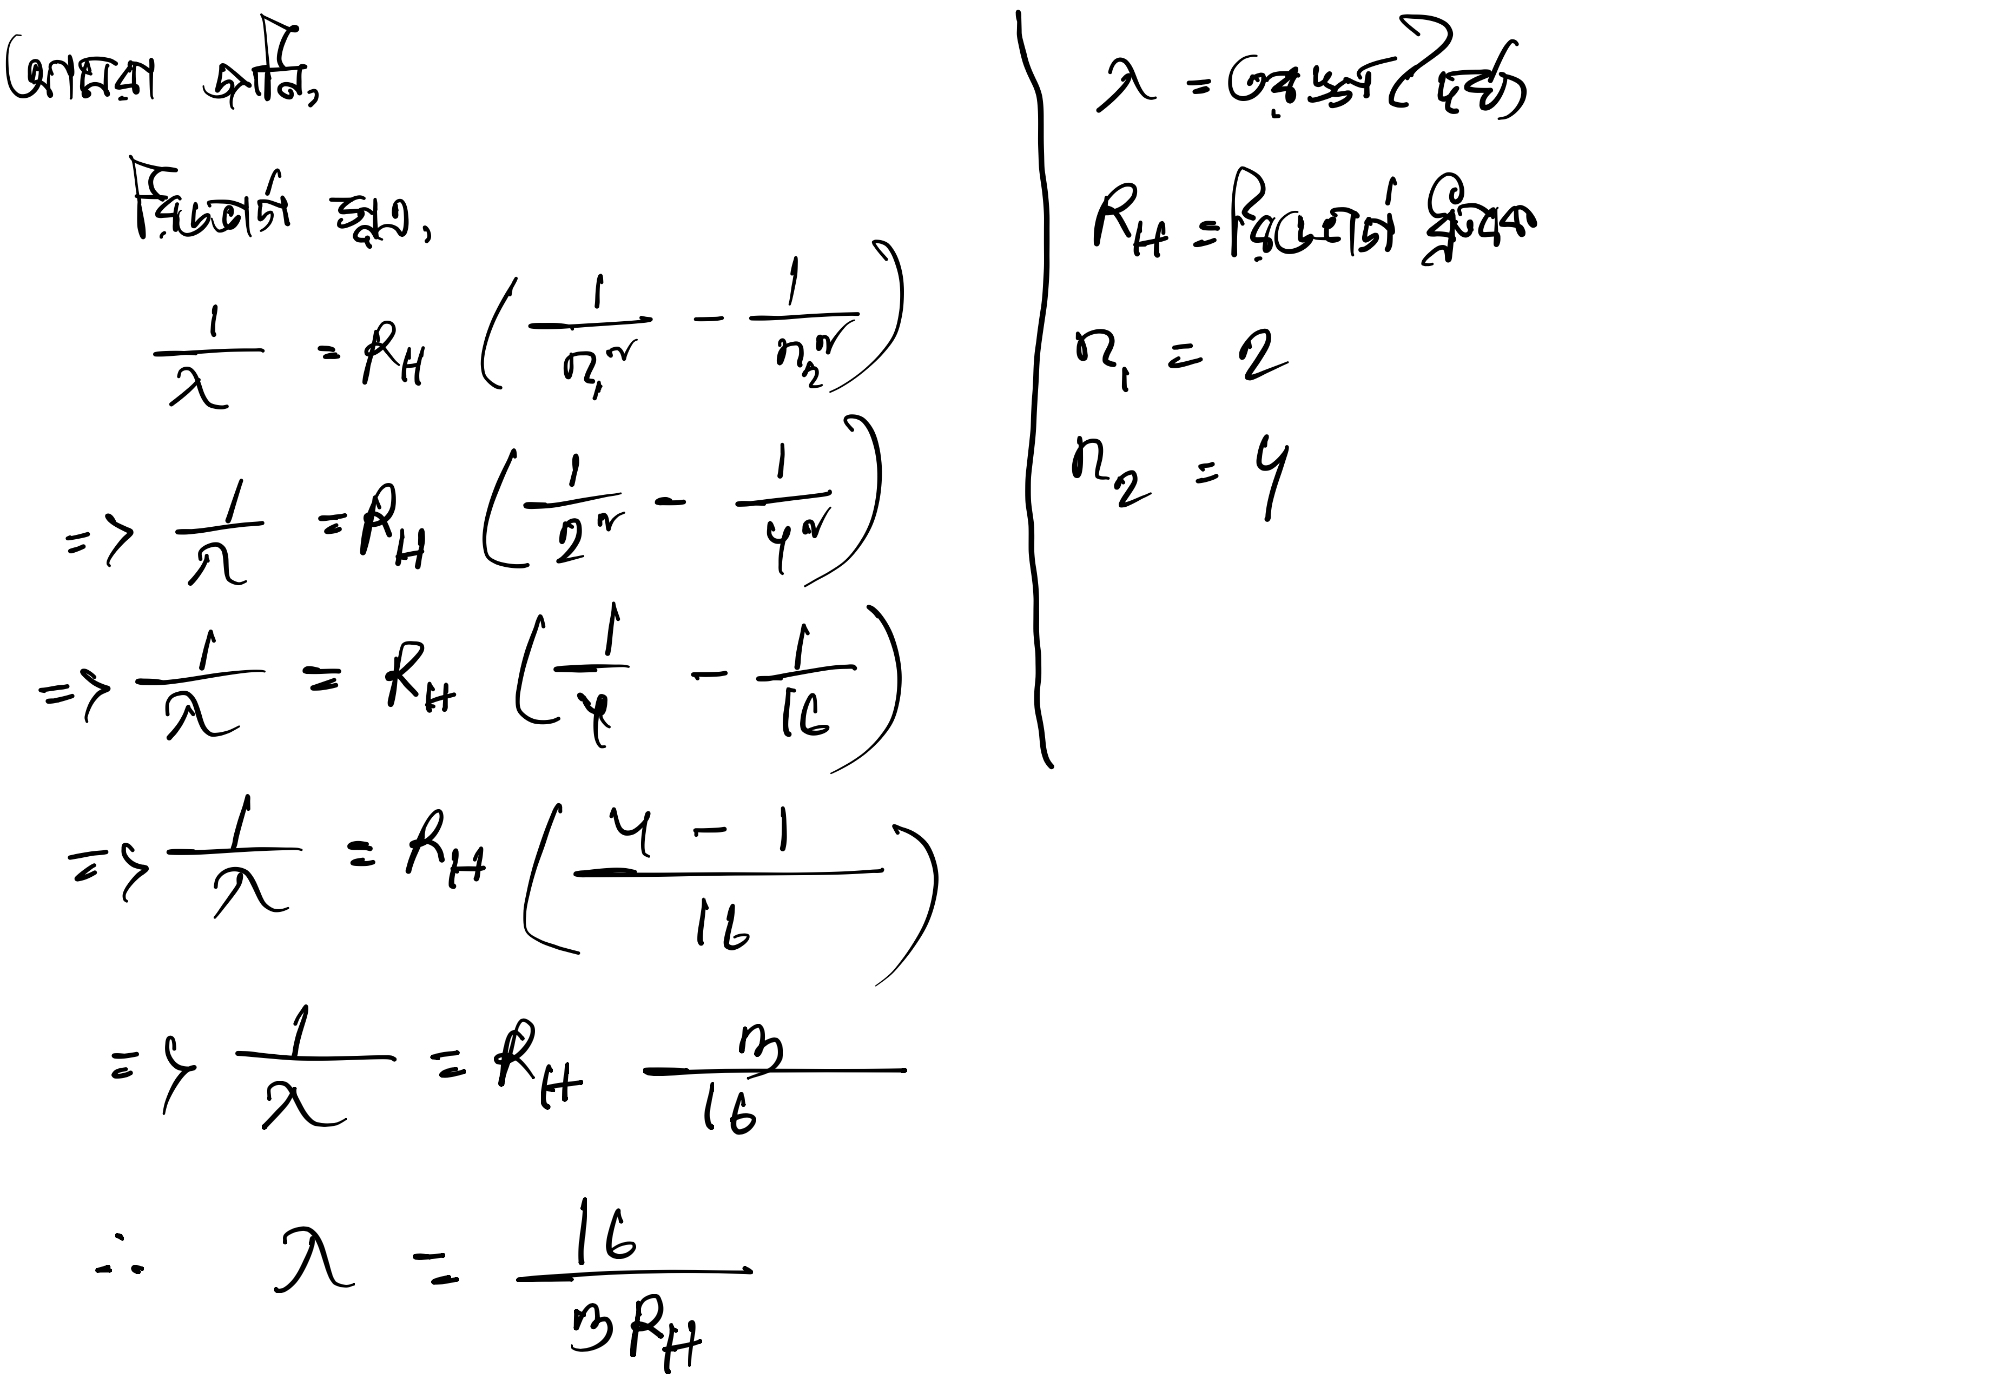 আমরা জানি,
রিডবার্গ সূত্র,
1/λ = R_H (1/n₁² - 1/n₂²)
=> 1/λ = R_H (1/2² - 1/4²)
=> 1/λ = R_H (1/4 - 1/16)
=> 1/λ = R_H ((4 - 1)/16)
=> 1/λ = R_H 3/16
∴ λ = 16/(3R_H)
λ = তরঙ্গ দৈর্ঘ্য
R_H = রিডবার্গ ধ্রুবক
n₁ = 2
n₂ = 4